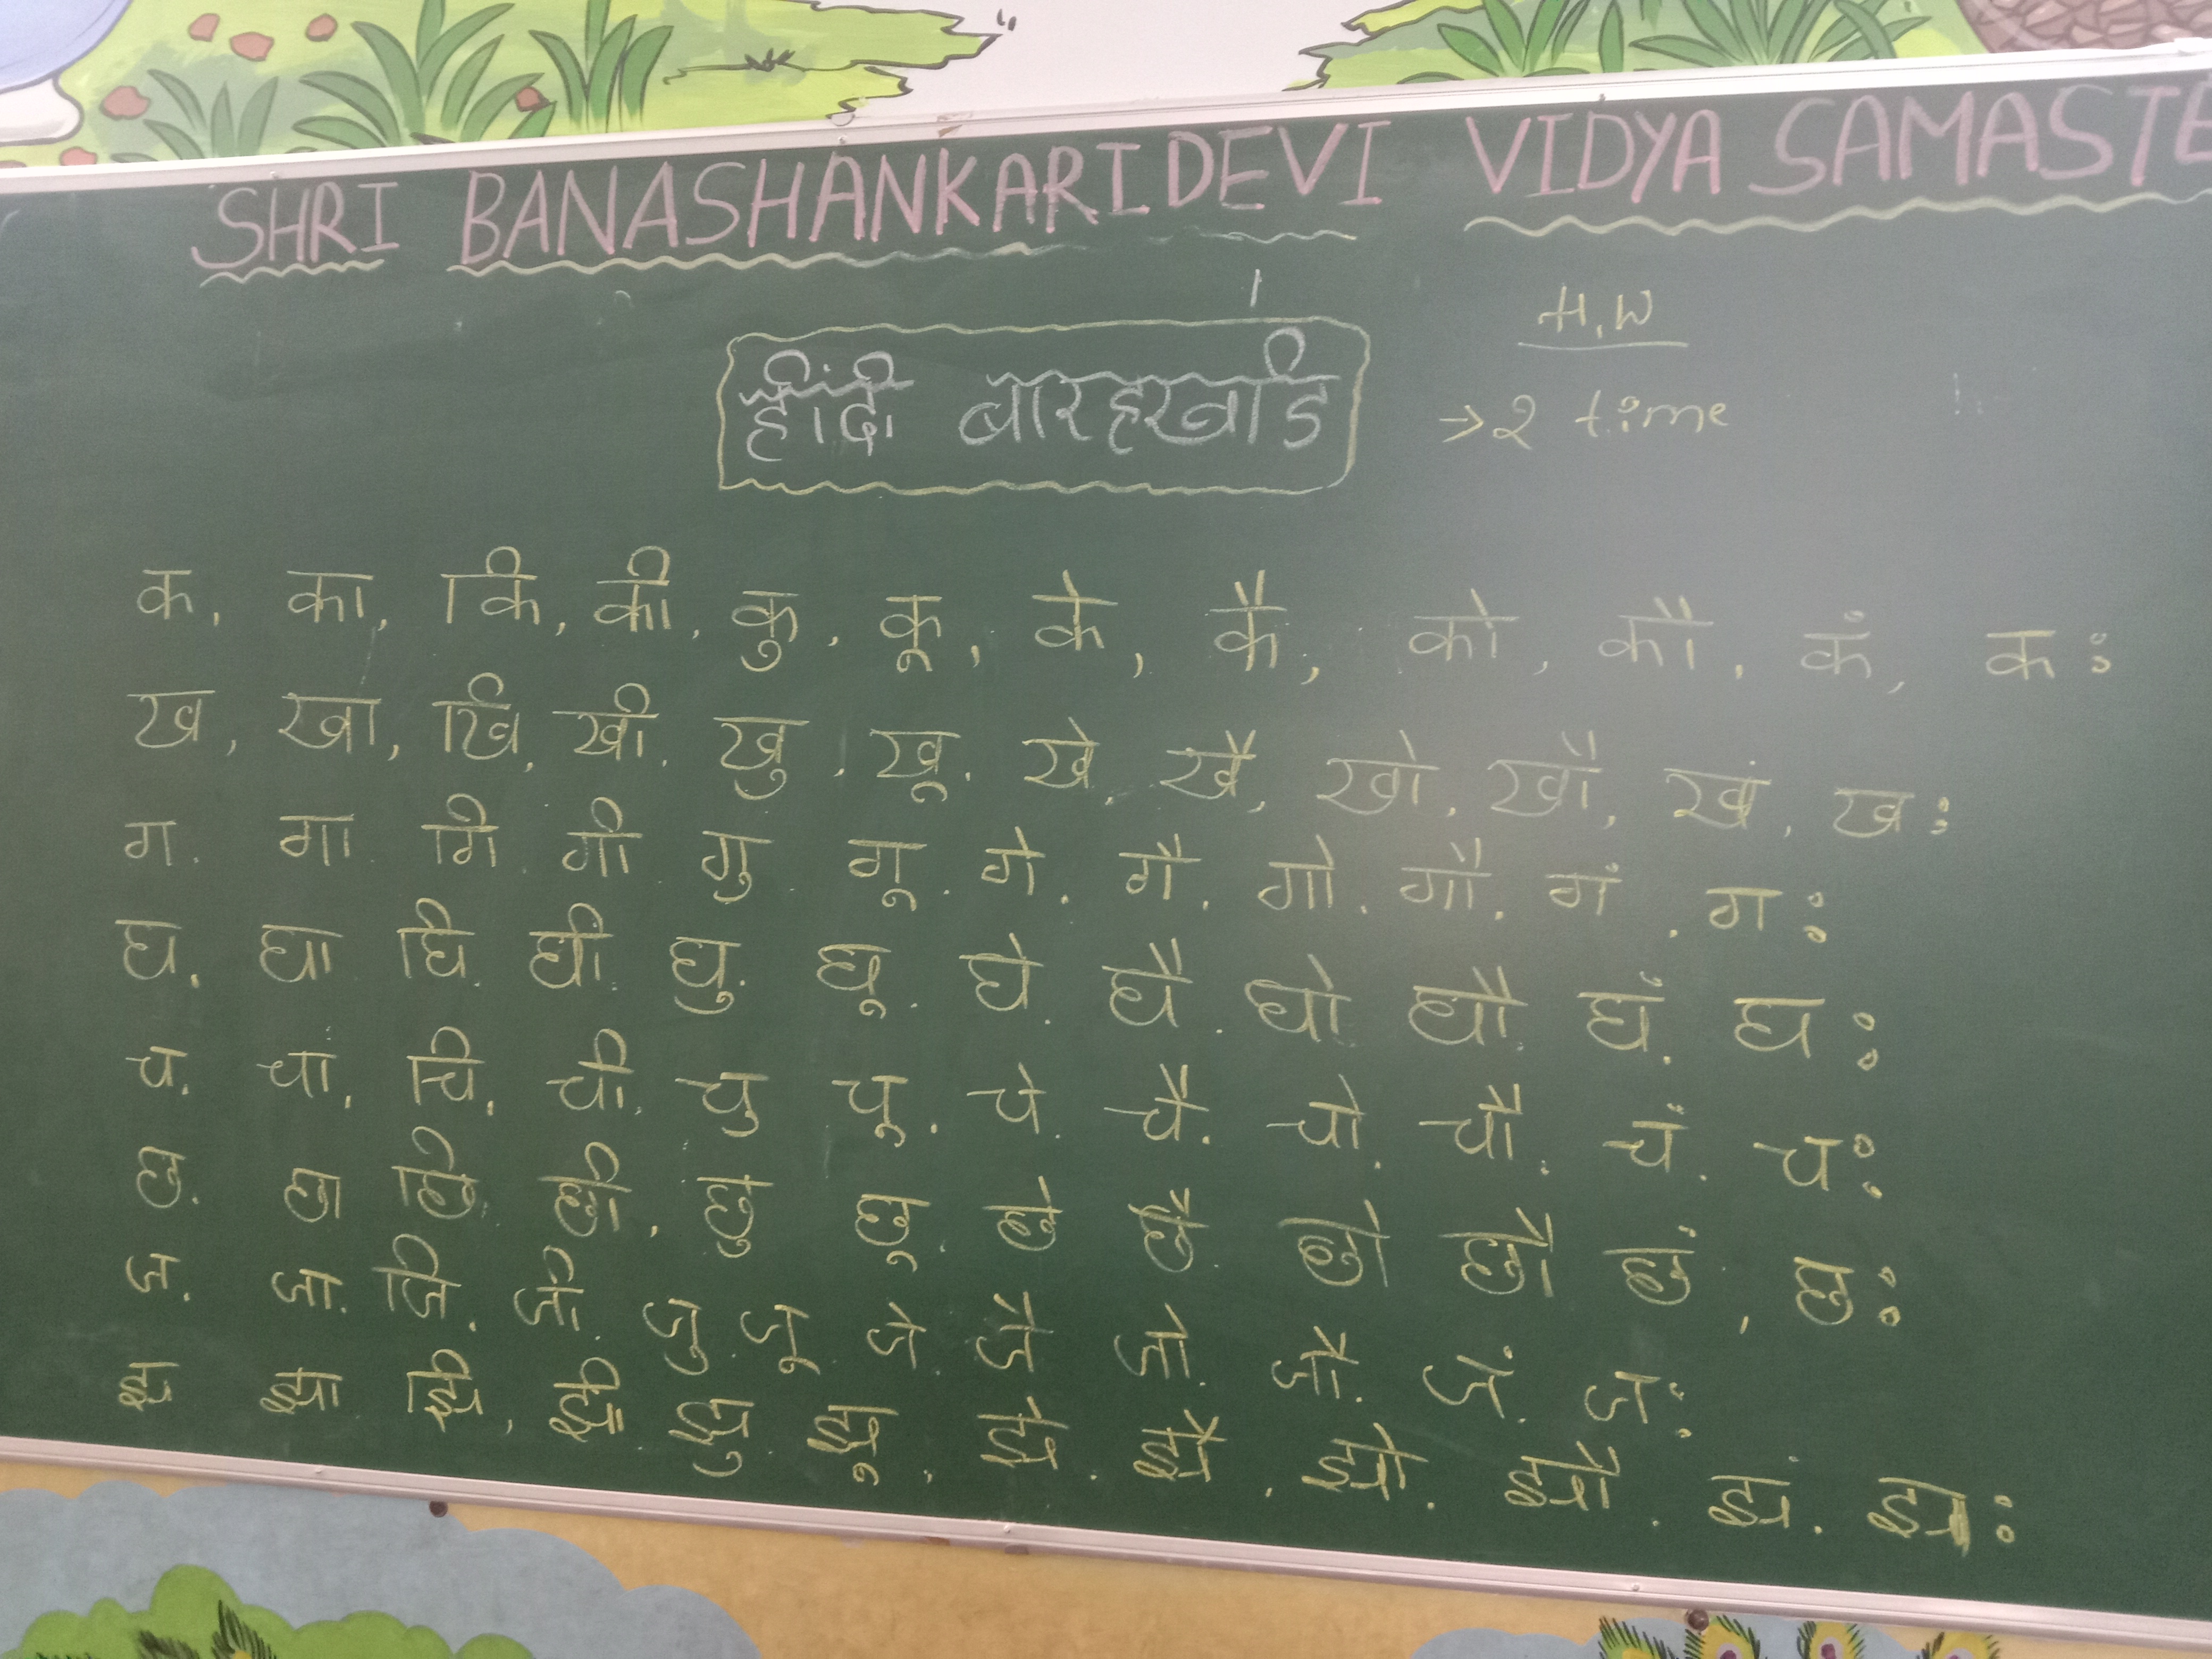 SHRI BANASHANKARI DEVI VIDYA SAMASTE
H.W
हीदीं बारहखडि → 2 time
क, का, कि, की, कु, कू, के, कै, को, कौ, कं, कः
ख, खा, खि, खी, खु, खू, खे, खै, खो, खौ, खं, खः
ग. गा गि गी गु गू. गे. गै. गो. गौ. गं . गः
घ. घा घि घी घु. घू. घे. घै. घो घौ घं. घः
च. चा. चि. ची. चु चू. चे. चै. चो. चौ. चं. चः
छ. छा छि छी. छु छू. छे छै. छो छौ छं, छः
ज. जा. जि. जी. जु. जू. जे. जै जो. जौ. जं. जः
झ झा झि, झी झु झू, झे. झै, झो. झौ. झं. झः